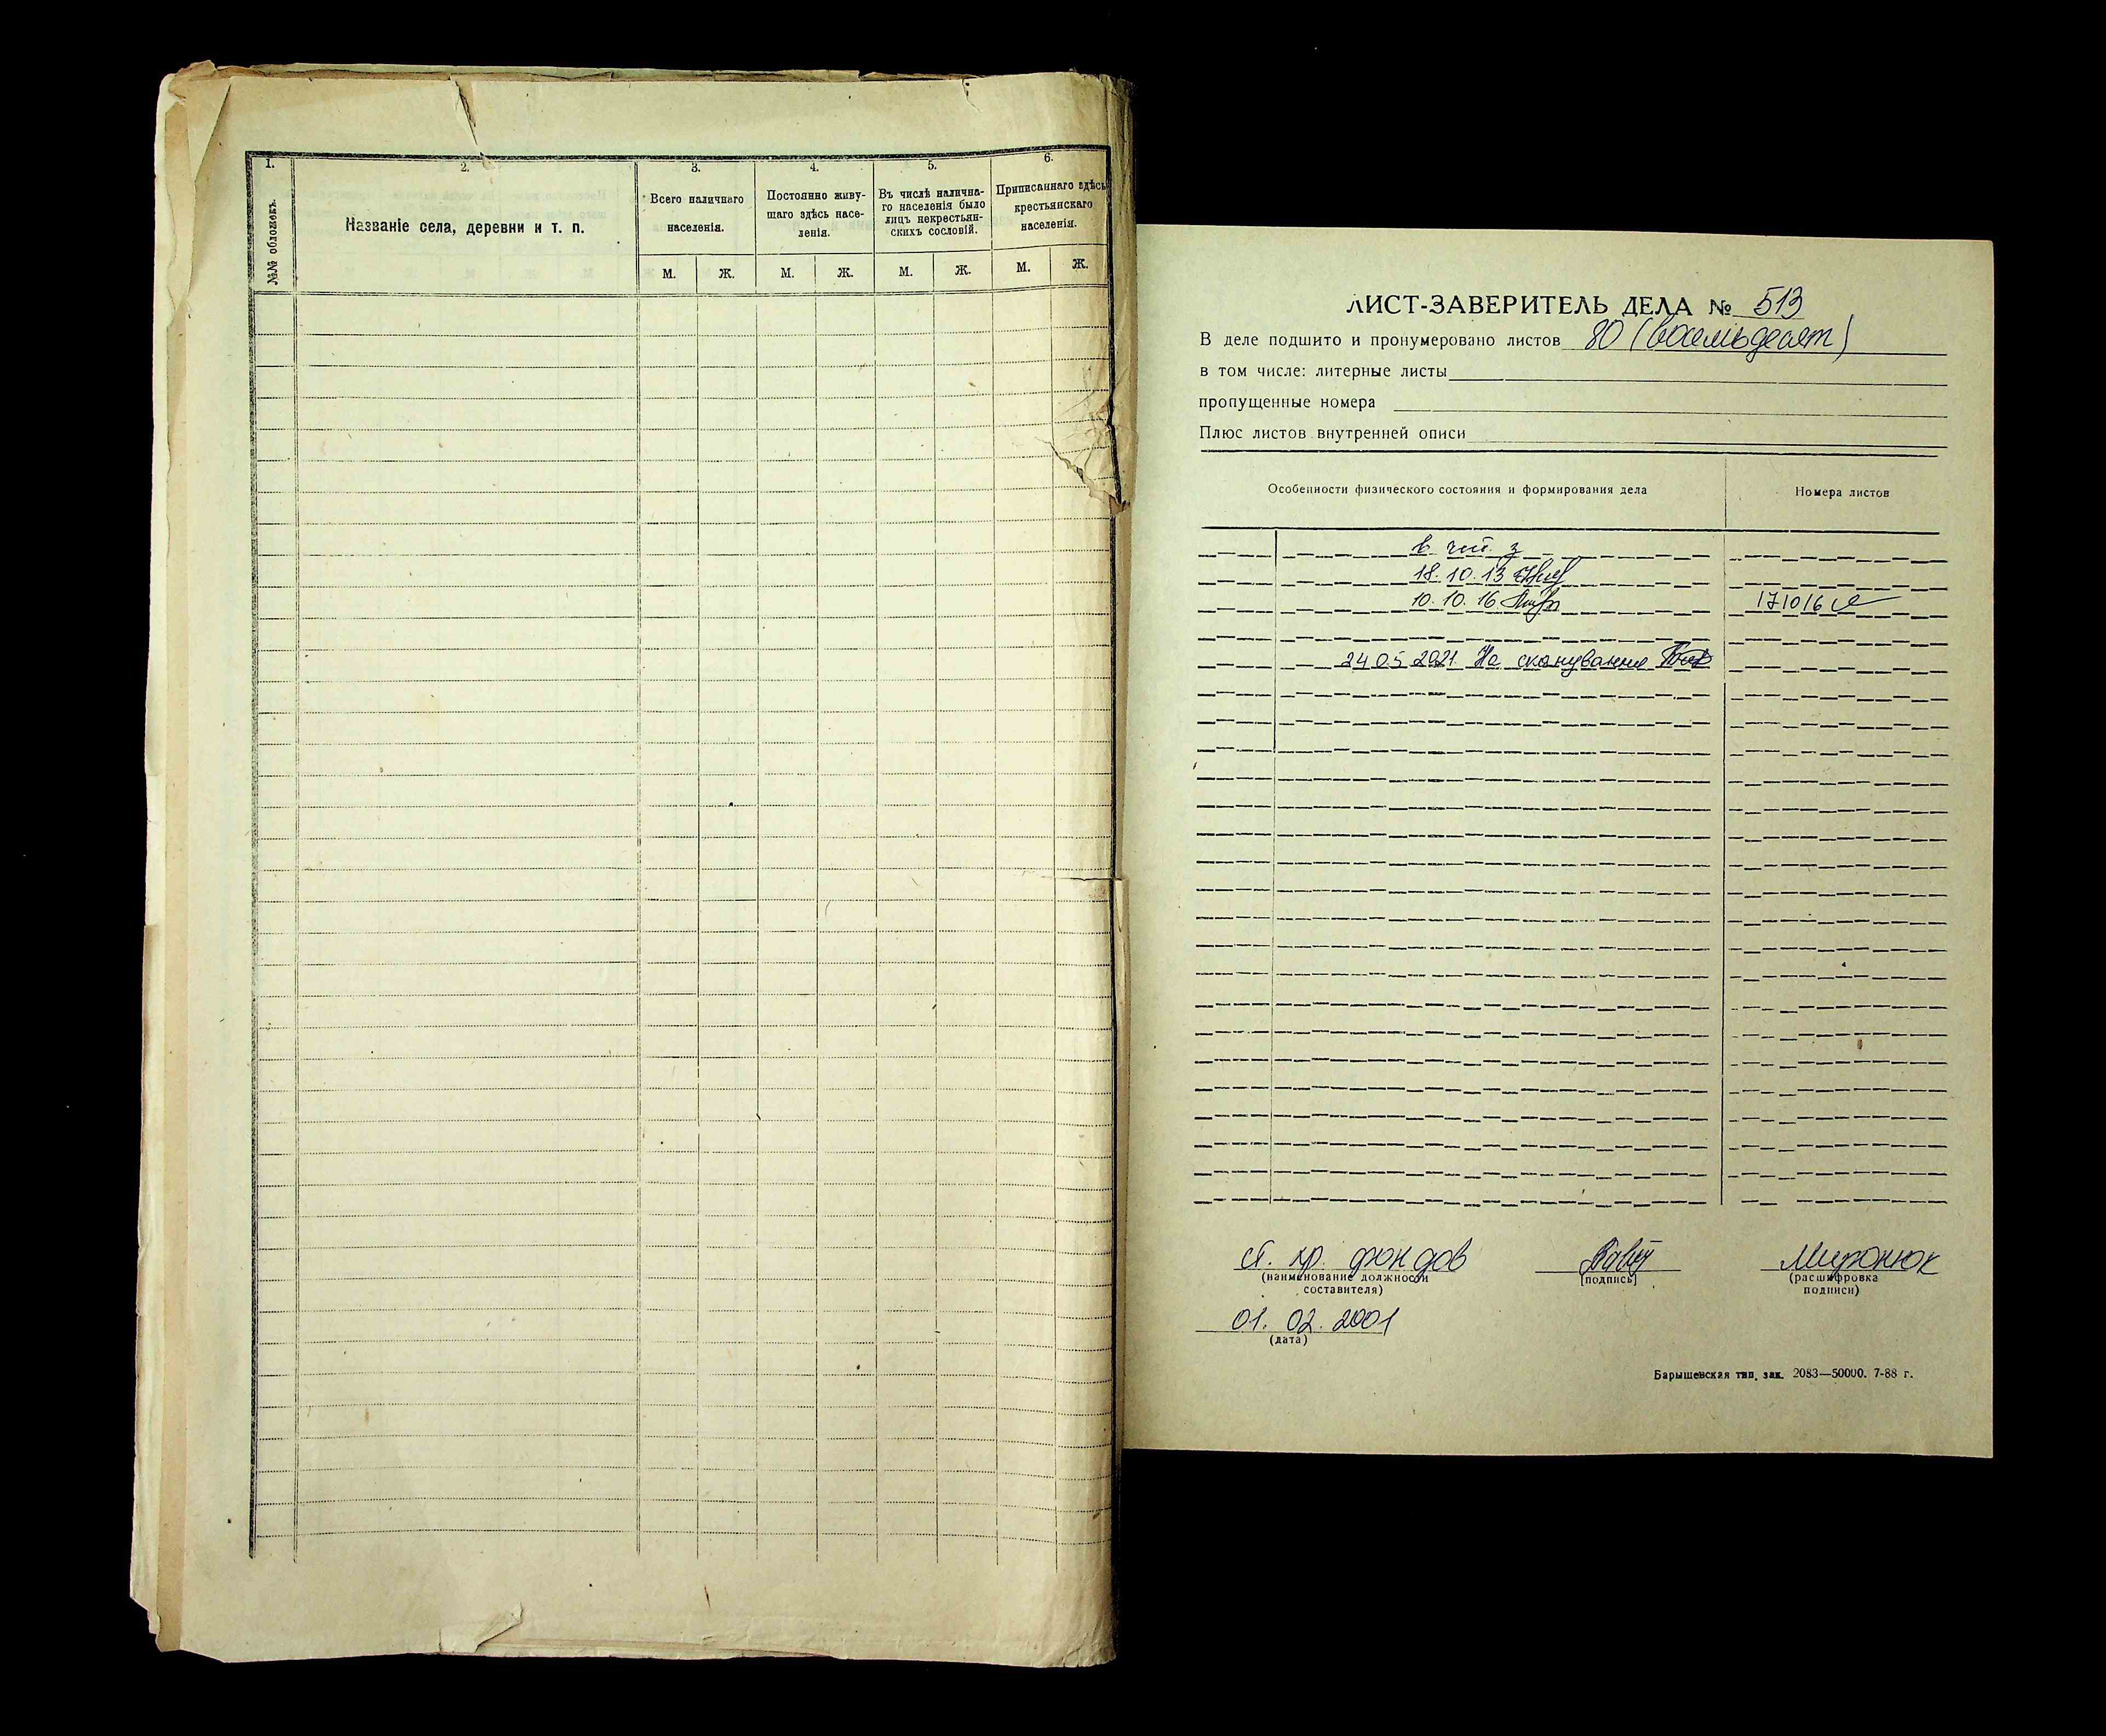 1.
2.
3.
4.
5.
6.
№№ обложекъ.
Названіе села, деревни и т. п.
Всего наличнаго
населенія.
Постоянно живу-
щаго здѣсь насе-
ленія.
Въ числѣ налична-
го населенія было
лицъ некрестьян-
скихъ сословій.
Приписаннаго здѣсь
крестьянскаго
населенія.
М. Ж. М. Ж. М. Ж. М. Ж.
ЛИСТ-ЗАВЕРИТЕЛЬ ДЕЛА № 513
В деле подшито и пронумеровано листов 80 (восемьдесят)
в том числе: литерные листы
пропущенные номера
Плюс листов внутренней описи
Особенности физического состояния и формирования дела
Номера листов
в чит. з
18.10.13
10.10.16 171016
24 05 2021 На сканування
ст. хр. фондов Миронюк
(наименование должности (подпись) (расшифровка
составителя) подписи)
01. 02. 2001
(дата)
Барышевская тип. зак. 2083—50000. 7-88 г.